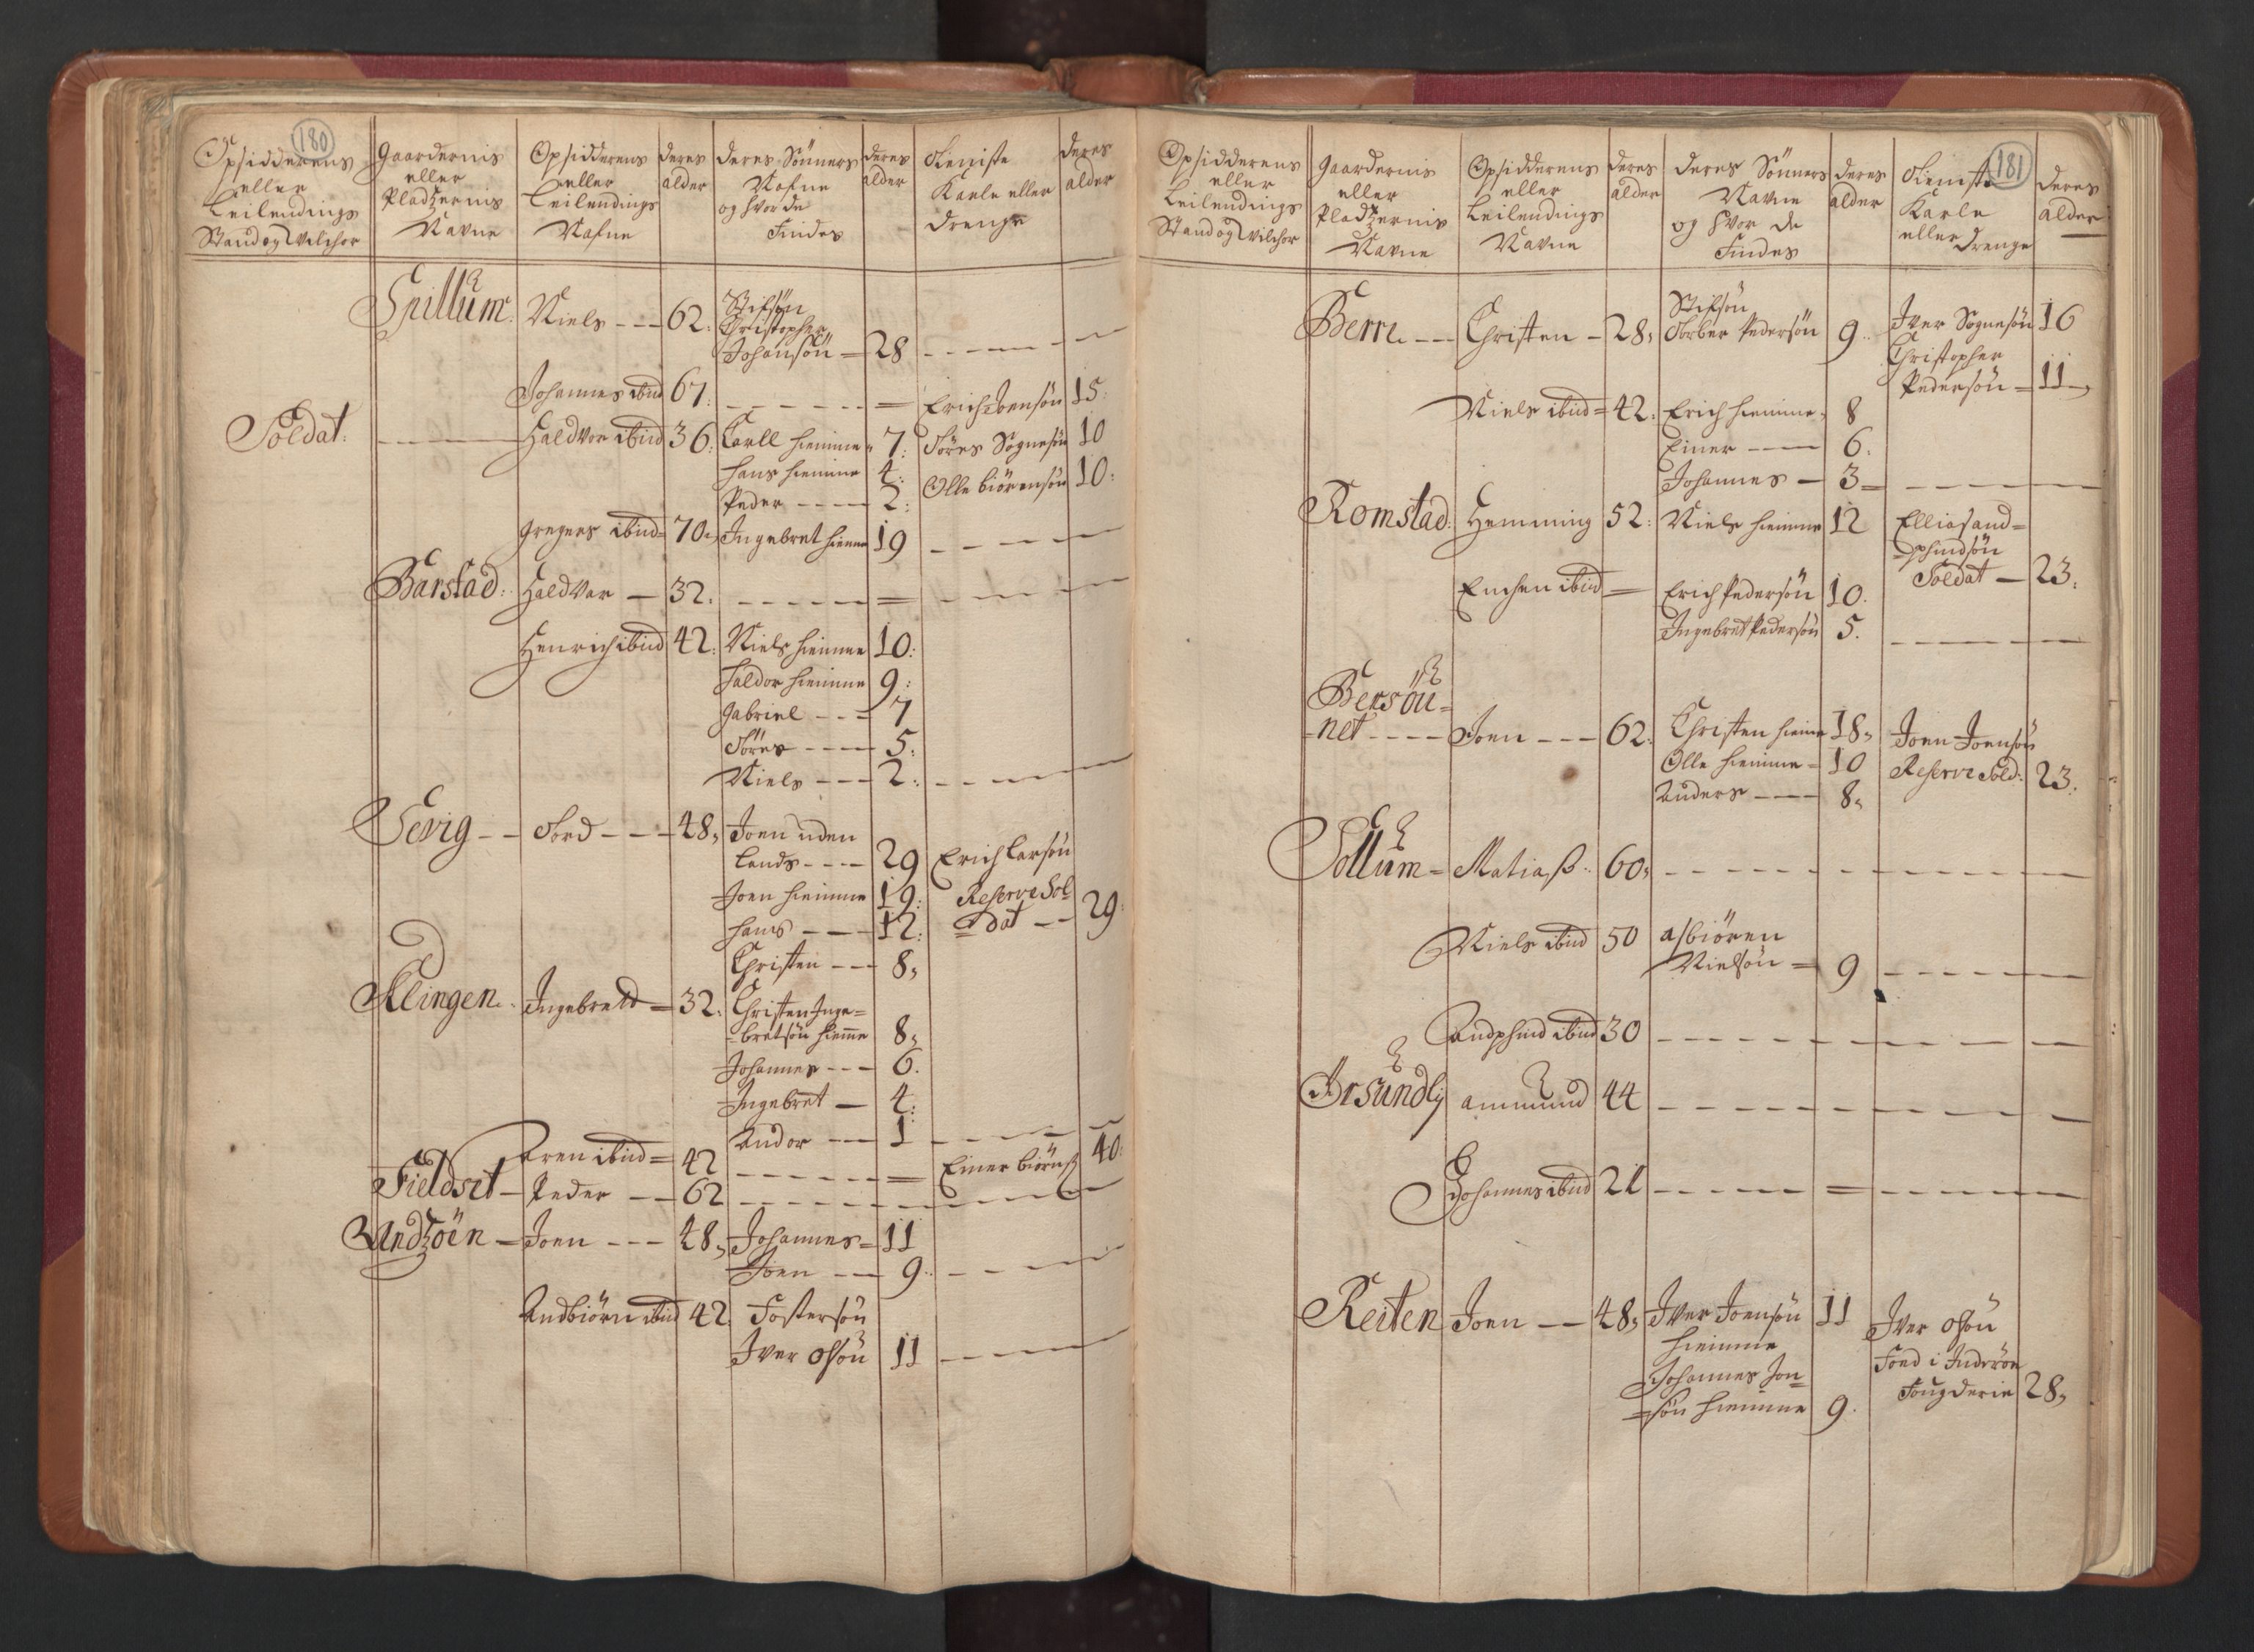 180
Opsidderens eller Leilendings Stand og Vilchor
Gaardernis eller Pladzernis Navne
Opsidderens eller Leilendings Nafne
deres alder
deres Sönners Nafne og hvor de Findes
deres alder
Tieniste Karle eller drenge
deres alder
Spillum. Niels --- 62: Stifsön
Christopher
Johansön = 28 -----
Johannes ibid 67: ------ = Erich Joensön 15:
Soldat: ------ Haldvor ibid 36: Carll hiemme 7: Töres Sognesön 10
Hans hiemme 4: Olle biörensön 10:
Peder ---- 2:
Gregers ibid= 70 Ingebret hieme 19 ----
Barstad: Haldvor — 32: ----- = ----
Henrich ibid 42: Niels hiemme 10:
Haldor hiemme 9:
Gabriel --- 7
Töres ---- 5:
Niels --- 2: ----
Sevig -- Tord --- 48, Joen uden
Lands ---- 29 Erich Larsön
Joen hiemme 19: Reserve Sol=
Hans --- 12: =dat -- 29:
Christen --- 8,
Klingen. Ingebreth = 32: Christen Inge=
=bretsön hieme 8,
Johannes --- 6.
Ingebret — 4:
Andor --- 1 -----
Aren ibid= 42 ------ = Einer biörnß 40:
Fieldset — Peder -- 62 ------
Andzöen — Joen --- 48, Johannes = 11
Joen -- 9: ----
Andbiörn ibid 42 Fostersön
Iver Olsön 11 ----
181
Opsidderens eller Leilendings Stand og Vilchor
Gaardernis eller Pladzernis Navne
Opsidderens eller Leilendings Navne
deres alder
deres Sönners Navne og hvor de Findes
deres alder
Tieniste Karle eller drenge
deres alder
Berre --- Christen — 28, Stifsön
Torber Pedersön 9: Iver Sognesön 16
Christopher
Pedersön = 11
Niels ibid = 42: Erich hiemme, 8
Einer --- 6:
Johannes — 3 = -----
Romstad: Hemming 52: Niels hiemme 12 Ellias and=
=phindsön
Soldat — 23:
Enchen ibid = Erich Pedersön 10.
Ingebret Pedersön 5. -----
Bersön=
=net ---- Joen --- 62: Christen hieme 18, Joen Joensön
Olle hiemme = 10 Reserve Sold: 23:
Anders --- 8,
Sollum = Matiaß: 60, ---------
Niels ibid 50 asbiören
Nielsön = 9 -----
Andphind ibid 30 ---------
Örsundly ammund 44 ---------
Johannes ibid 21 ----- = -----
Reiten Joen -- 48, Iver Joensön 11 Iver Olsön
hiemme
Föed i Inderöe
Johannes Jon=
Fougderie 28,
=sön hiemme 9.